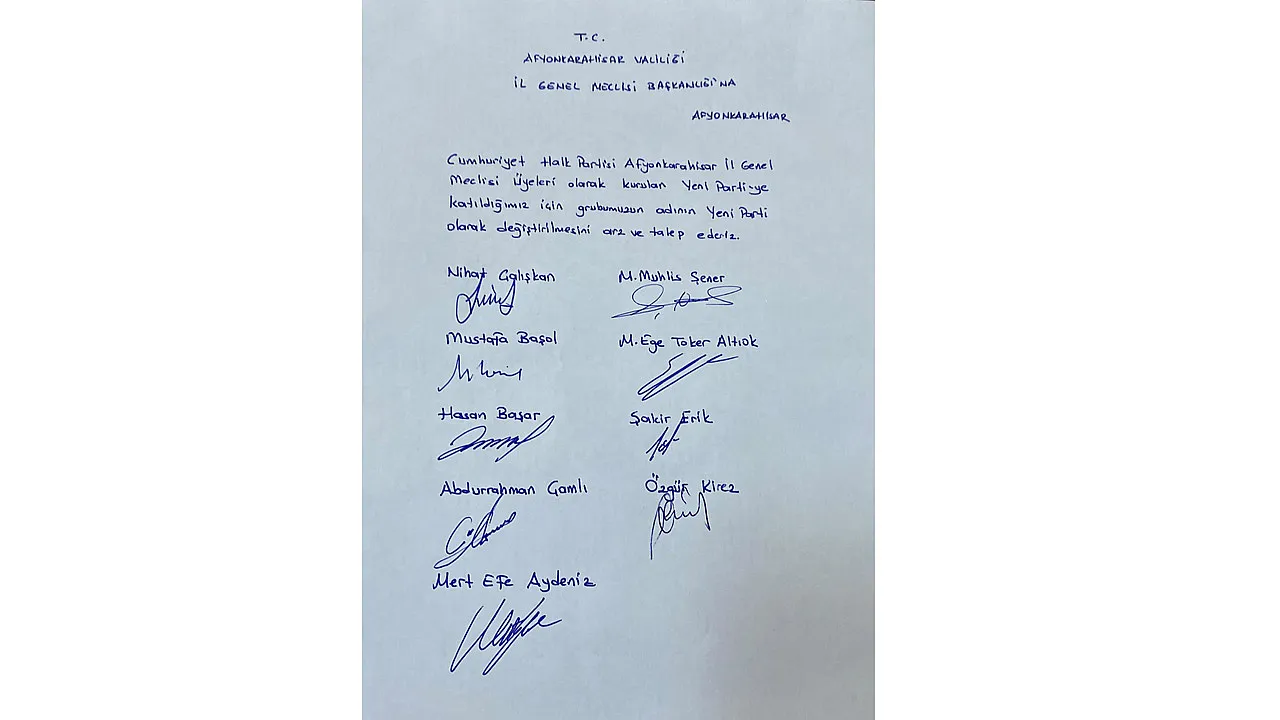 T.C.
AFYONKARAHİSAR VALİLİĞİ
İL GENEL MECLİSİ BAŞKANLIĞI'NA
AFYONKARAHİSAR
Cumhuriyet Halk Partisi Afyonkarahisar İl Genel
Meclisi Üyeleri olarak kurulan Yeni Parti-ye
katıldığımız için grubumuzun adının Yeni Parti
olarak değiştirilmesini arz ve talep ederiz.
Nihat Çalışkan M. Muhlis Şener
Mustafa Başol M. Ege Toker Altıok
Hasan Başar Şakir Erik
Abdurrahman Camlı Özgür Kirez
Mert Efe Aydeniz